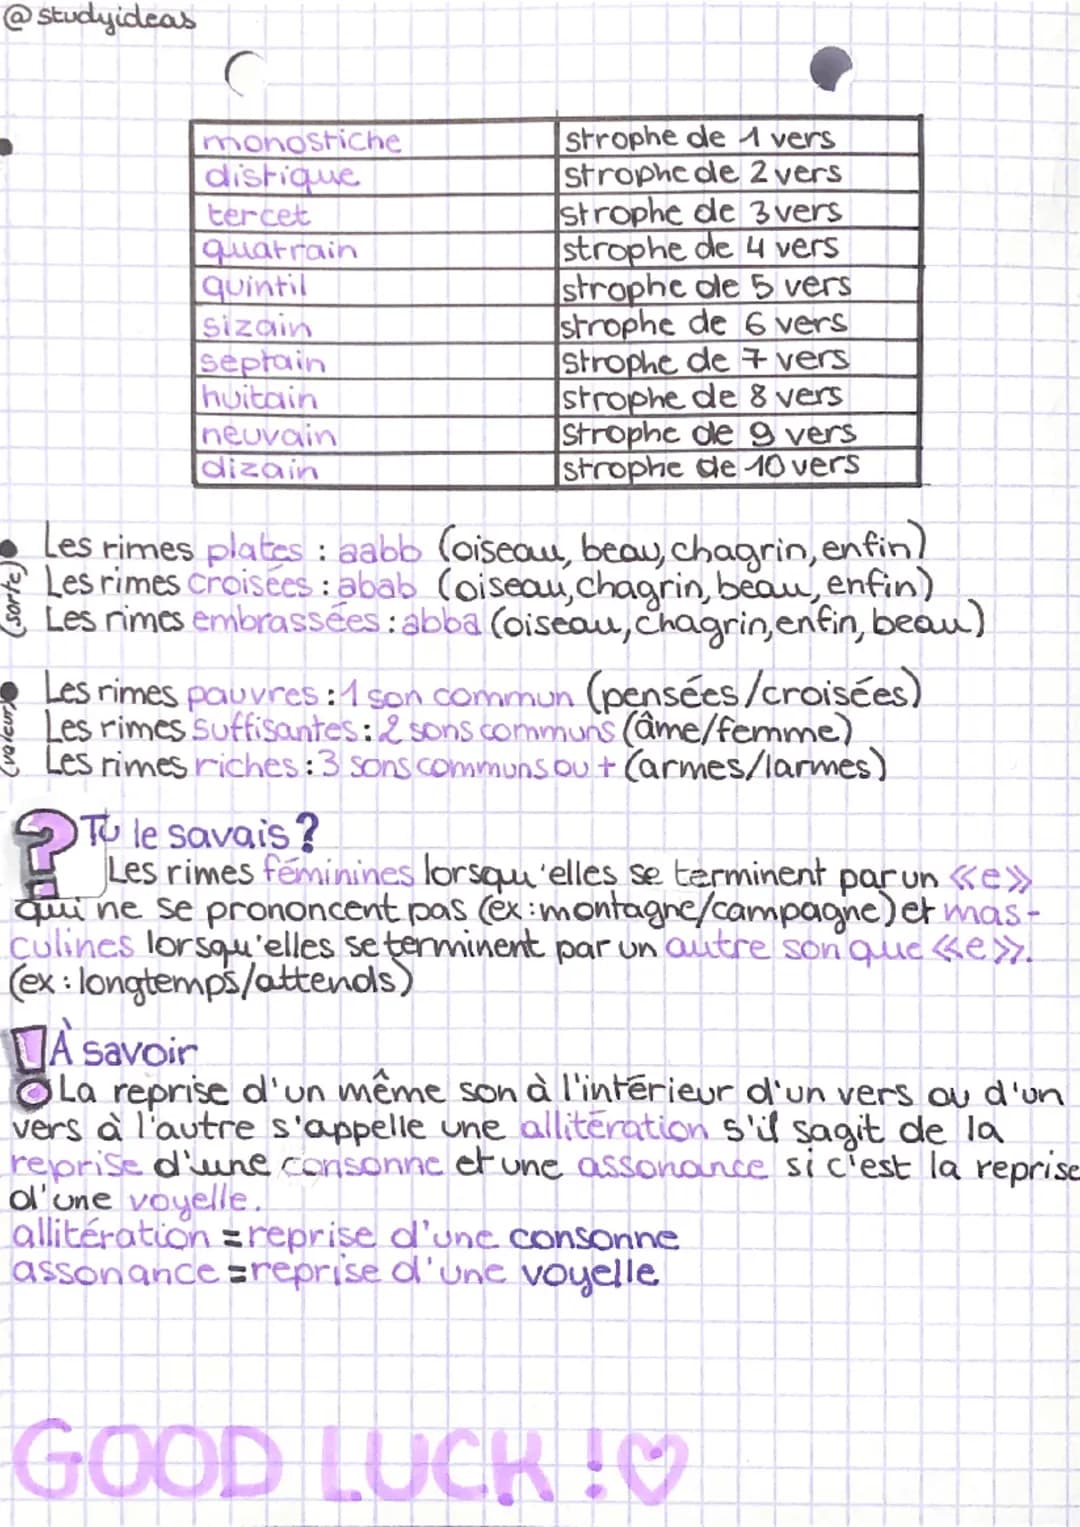 @studyideas
monostiche strophe de 1 vers
distique strophe de 2 vers
tercet strophe de 3 vers
quatrain strophe de 4 vers
quintil strophe de 5 vers
sizain strophe de 6 vers
septain strophe de 7 vers
huitain strophe de 8 vers
neuvain strophe de 9 vers
dizain strophe de 10 vers
(sorte)
• Les rimes plates : aabb (oiseau, beau, chagrin, enfin)
Les rimes croisées : abab (oiseau, chagrin, beau, enfin)
Les rimes embrassées : abba (oiseau, chagrin, enfin, beau)
(valeur)
• Les rimes pauvres : 1 son commun (pensées/croisées)
Les rimes suffisantes : 2 sons communs (âme/femme)
Les rimes riches : 3 sons communs ou + (armes/larmes)
? Tu le savais ?
Les rimes féminines lorsqu'elles se terminent par un «e»
qui ne se prononcent pas (ex : montagne/campagne) et mas-
culines lorsqu'elles se terminent par un autre son que «e».
(ex : longtemps/attends)
! À savoir
La reprise d'un même son à l'intérieur d'un vers ou d'un
vers à l'autre s'appelle une allitération s'il sagit de la
reprise d'une consonne et une assonance si c'est la reprise
d'une voyelle.
allitération = reprise d'une consonne
assonance = reprise d'une voyelle
GOOD LUCK ! ♡